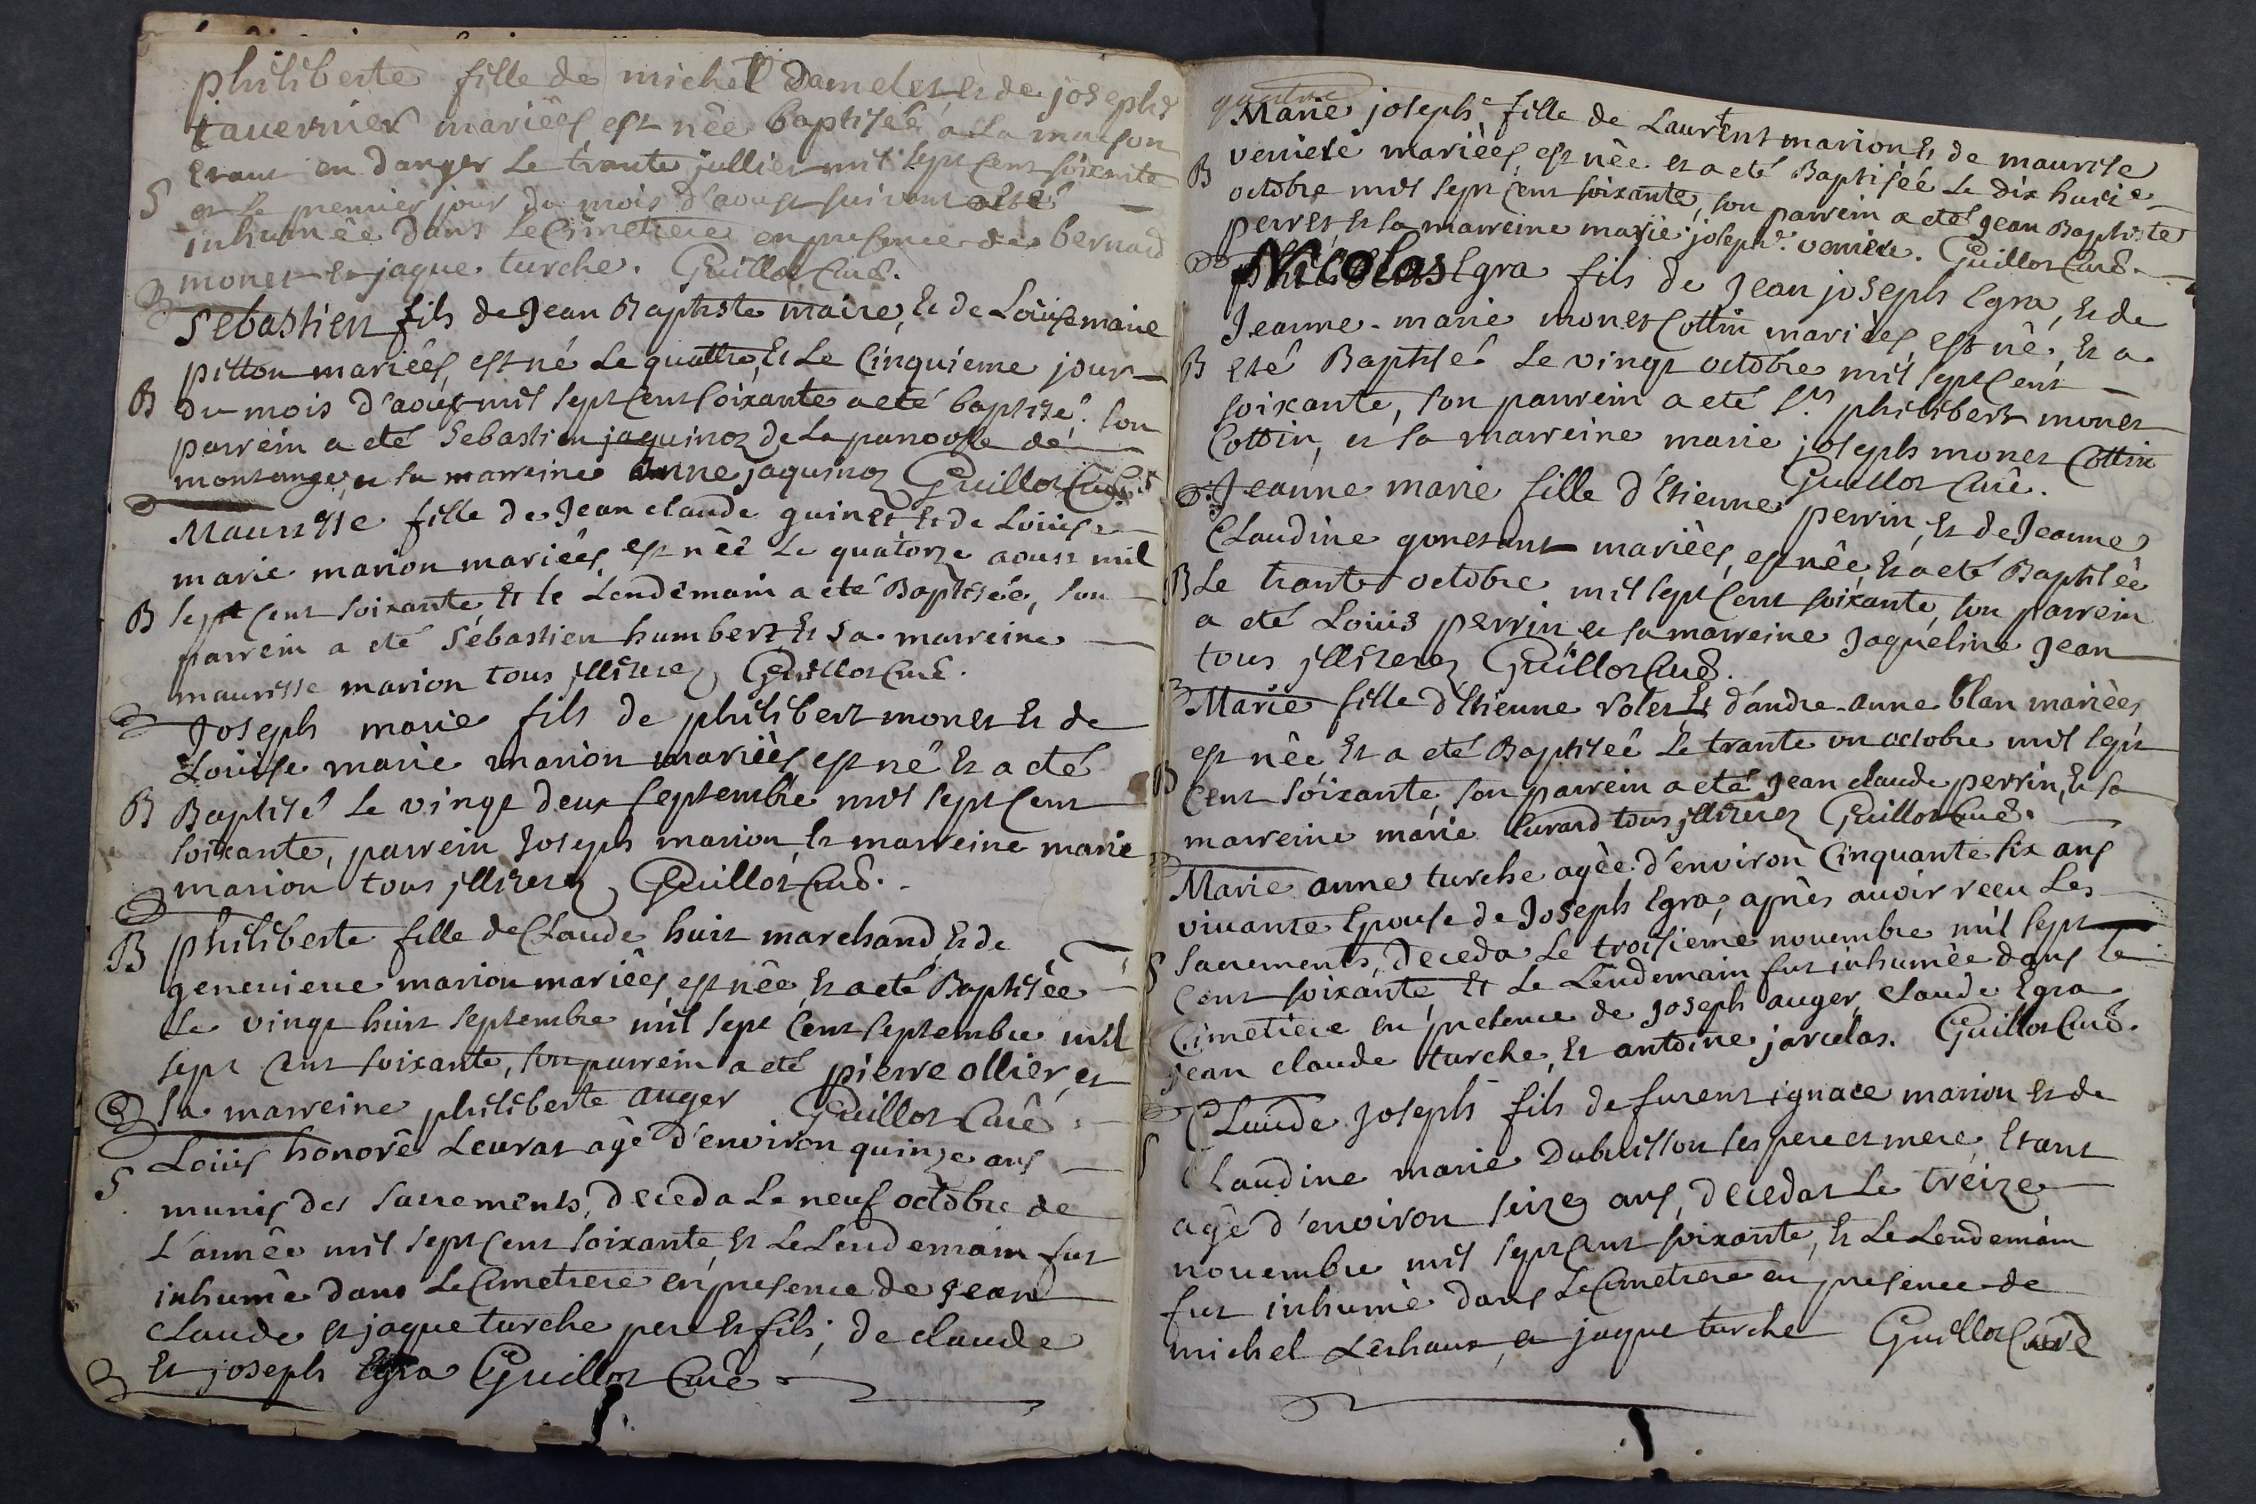 philiberte fille de michel Damelet, et de josephe
tavernier mariées, est née baptisée a la maison
etant en danger le trante jullier mil sept cent soixante
S et le premier jour du mois d'aoust suivant a eté
inhumée dans le Cimetiere en presence de bernard
monet et jaque turche. Guillot Curé.
Sebastien fils de Jean Baptiste maire, et de Loüise marie
pitton mariées, est né le quattre, et le Cinquieme jour
B du mois d'aoust mil sept cent soixante a eté baptisé. son
parrein a eté Sebastien jaquinoz de la paroosse de
montange, et sa marreine anne jaquinoz Guillot Curé
Maurisse fille de Jean claude quinet et de Loüise
marie marion mariées, est née le quatorze aoust mil
B sept cent soixante, et le Lendemain a eté Baptisée, son
parrein a eté Sébastien humbert et sa marreine
maurisse marion tous illiterez Guillot Curé.
Joseph marie fils de philibert monet et de
Loüise marie marion mariées, est né et a eté
B Baptisé le vingt deux septembre mil sept cent
soixante, parrein Joseph marion, et marreine marie
marion tous illiterez Guillot Curé.
B philiberte fille de Claude huit marchand, et de
genevieve marion mariées, est née, et a eté Baptisée
le vingt huit septembre mil sept cent septembre mil
sept cent soixante, son parrein a eté pierre ollier, et
sa marreine philiberte auger Guillot Curé
Loüis honoré Leurat agé d'environ quinze ans
S munis des sacrements, deceda le neuf octobre de
L'année mil sept cent soixante, et le Lendemain fut
inhumé dans le Cimetiere en presence de jean
claude et jaque turche pere et fils; de claude
et joseph Egra Guillot Curé
quattre
Marie josephe fille de Laurent marion et de maurise
veniere mariées, est née et a eté Baptisée le dix huit
B octobre mil sept cent soixante, son parrein a eté jean Baptiste
perret, et sa marreine marie josephe veniere. Guillot Curé.
Nicolas Egra fils de Jean joseph Egra, et de
Jeanne-marie monet Cottin mariées, est né, et a
B eté Baptisé le vingt octobre mil sept cent
soixante, son parrein a eté Sr. philibert monet
Cottin, et sa marreine marie joseph monet Cottin
Guillot Curé.
Jeanne marie fille d'Etienne perrin, et de Jeanne
Claudine gonetant mariées, est née, et a eté Baptisée
B Le trante octobre mil sept cent soixante, son parrein
a eté Loüis perrin et sa marreine Jaqueline Jean
tous illiterez Guillot Curé.
Marie fille d'Etienne volet, et d'andre-anne blan mariées
est née et a eté Baptisée le trante un octobre mil sept
B cent soixante, son parrein a eté Jean claude perrin, et sa
marreine marie Curard tous illiterez Guillot Curé.
Marie anne turche agée d'environ Cinquante six ans
vivante Epouse de Joseph Egra, après avoir receu Les
S sacrements, deceda le troisieme novembre mil sept
cent soixante et le Lendemain fut inhumée dans le
Cimetiere en presence de joseph auger, claude Egra
Jean claude turche, et antoine jarcelas. Guillot Curé.
Claude Joseph fils de furent ignace marion et de
S Claudine marie Dubuisson ses pere et mere, Etant
agé d'environ seize ans, decedat le treize
novembre mil sept cent soixante, et le Lendemain
fut inhumé dans le Cimetiere en presence de
michel Lechaux, et jaque turche Guillot Curé